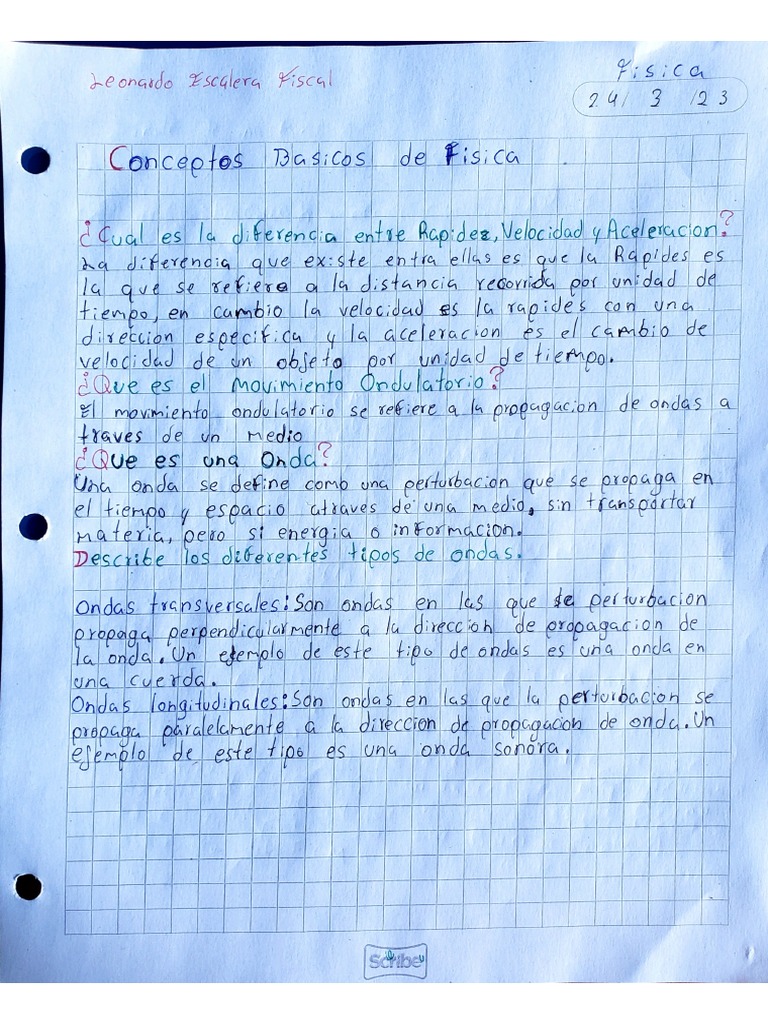 Leonardo Escalera Fiscal
Fisica
24/ 3 /23
Conceptos Basicos de Fisica
¿Cual es la diferencia entre Rapidez, Velocidad y Aceleracion?
La diferencia que existe entra ellas es que la Rapides es
la que se refiere a la distancia recorrida por unidad de
tiempo, en cambio la velocidad es la rapides con una
direccion especifica y la aceleracion es el cambio de
velocidad de un objeto por unidad de tiempo.
¿Que es el Movimiento Ondulatorio?
El movimiento ondulatorio se refiere a la propagacion de ondas a
traves de un medio
¿Que es una Onda?
Una onda se define como una perturbacion que se propaga en
el tiempo y espacio atraves de una medio, sin transportar
materia, pero si energia o informacion.
Describe los diferentes tipos de ondas.
Ondas transversales: Son ondas en las que se perturbacion
propaga perpendicularmente a la direccion de propagacion de
la onda. Un ejemplo de este tipo de ondas es una onda en
una cuerda.
Ondas longitudinales: Son ondas en las que la perturbacion se
propaga paralelamente a la direccion de propagacion de onda. Un
ejemplo de este tipo es una onda sonora.
Scribe